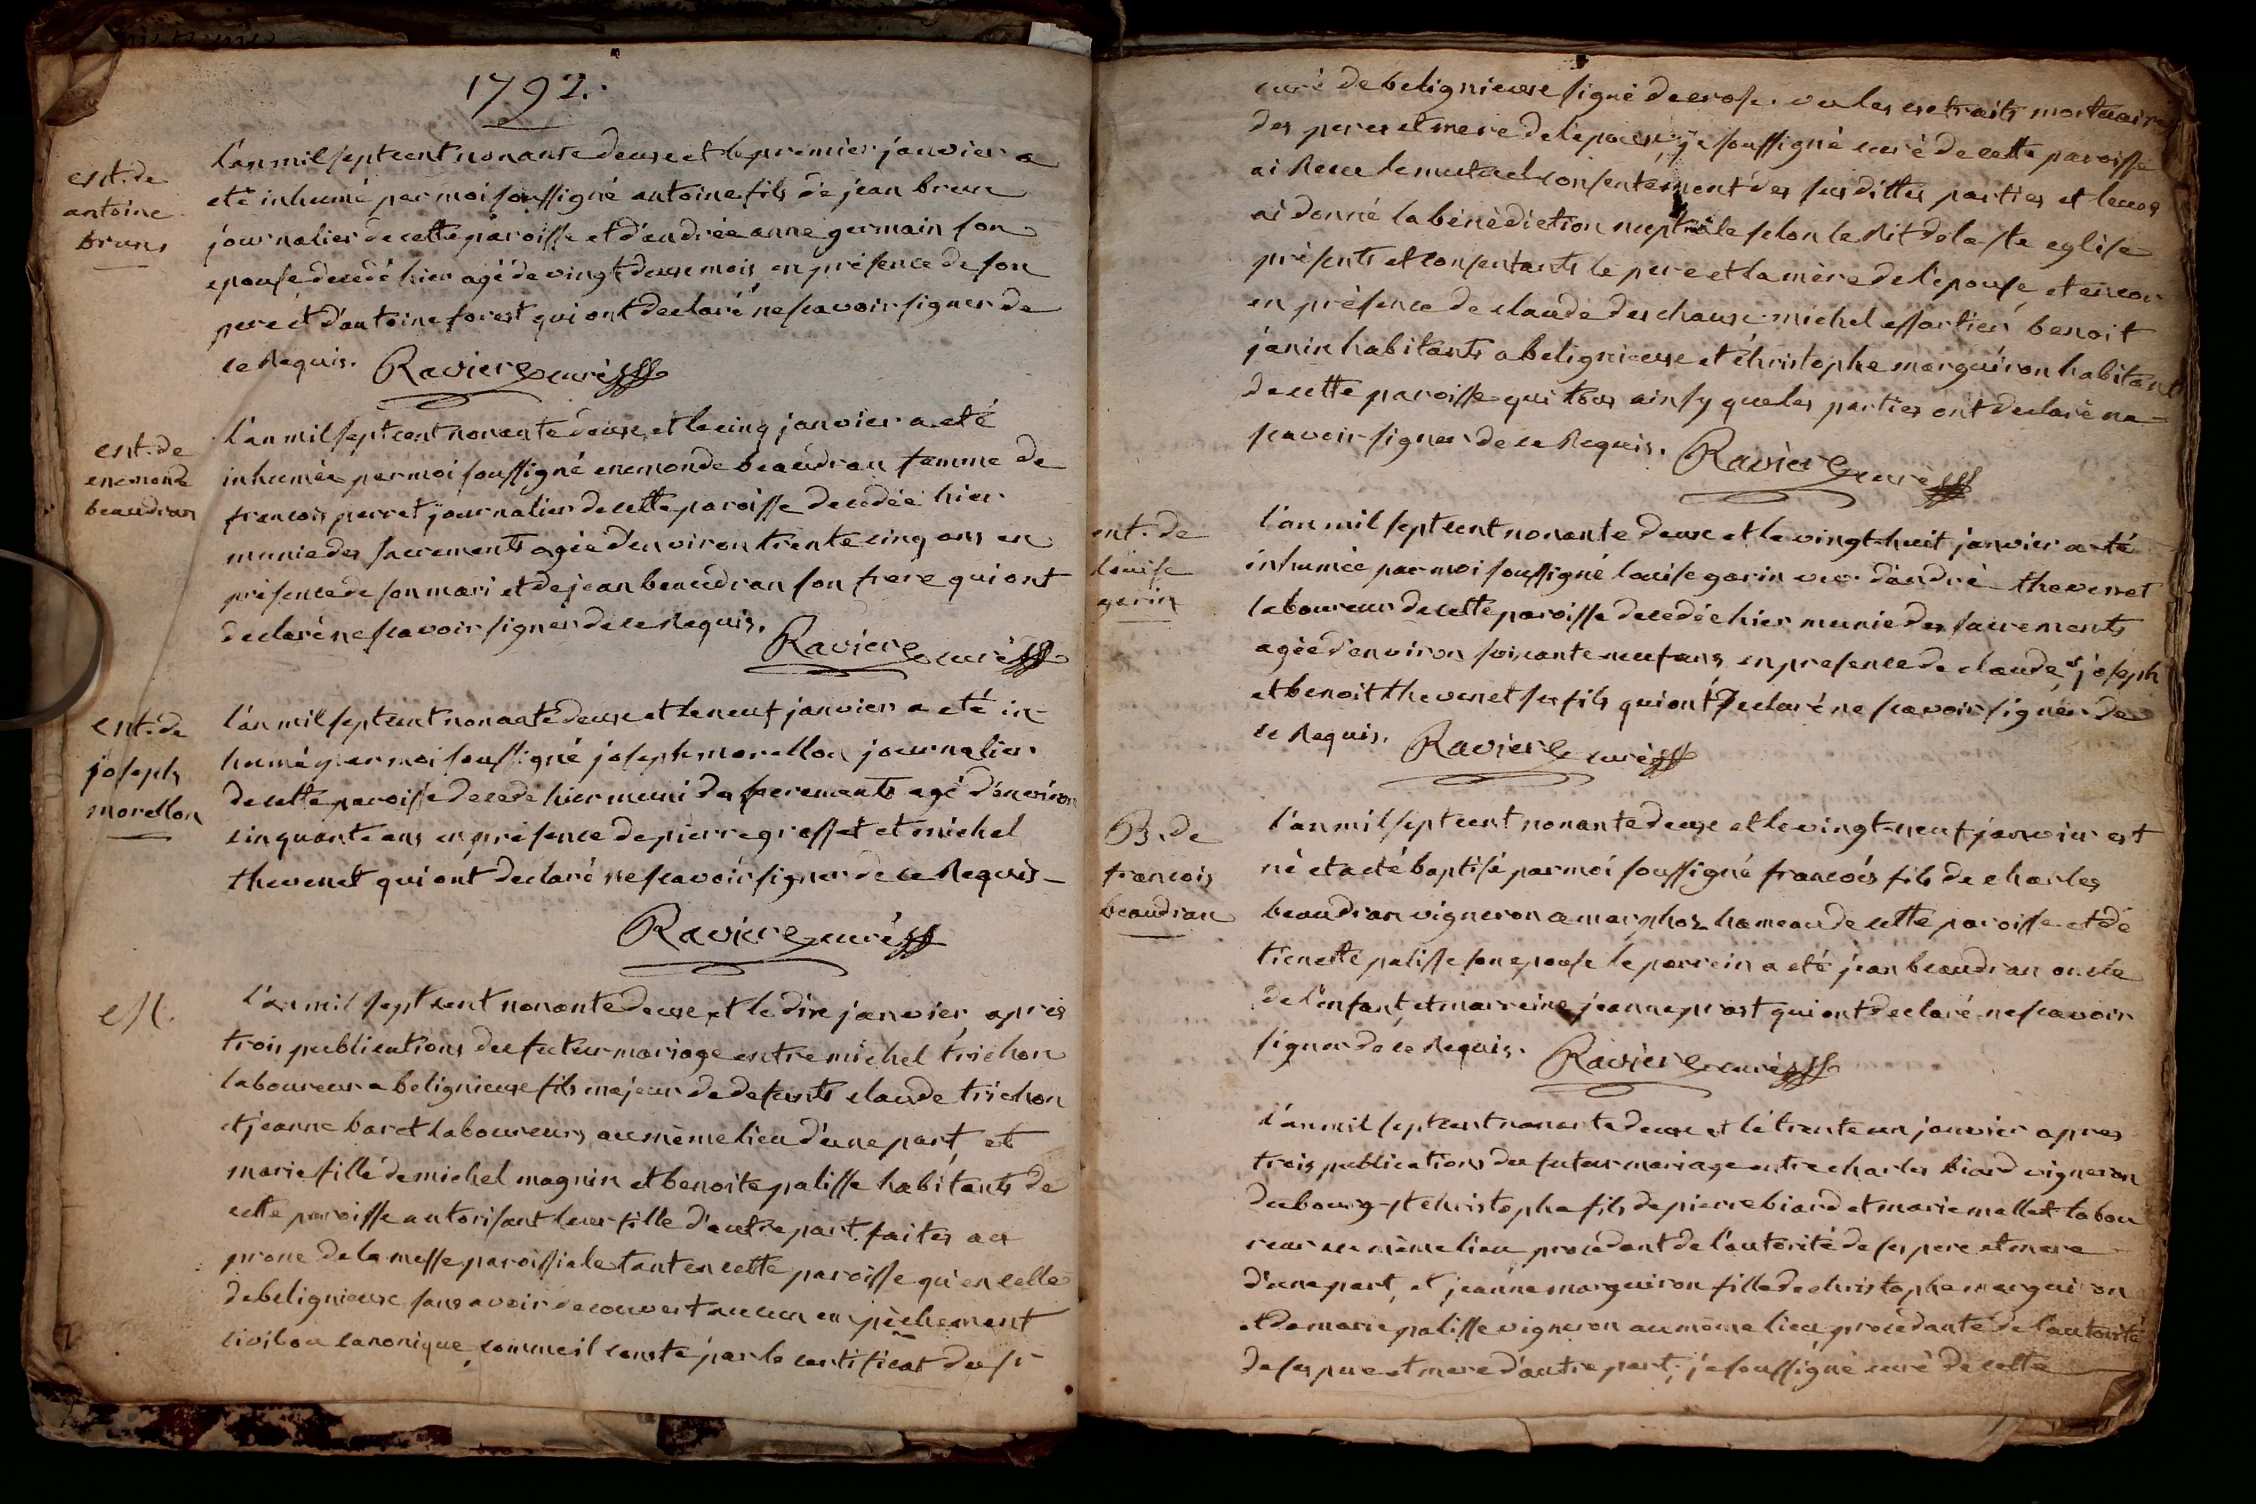 1792.
ent. de
antoine
brun
l'an mil sept cent nonante deuxe et le premier janvier a
eté inhumé par moi soussigné antoine fils de jean brun
journalier de cette paroisse et d'andrée anne germain son
epouse decedé hier agé de vingt deuxe mois en présence de son
pere et d'antoine forest qui ont declaré ne scavoir signer de
ce Requis. Raviere curé
ent. de
enemonde
beaudran
l'an mil sept cent nonante deuxe, et le cinq janvier a eté
inhumée par moi soussigné enemonde beaudran femme de
francois perret journalier de cette paroisse decedée hier
munie des sacrements agée d'environ trente cinq ans en
présence de son mari et de jean beaudran son frere qui ont
declaré ne scavoir signer de ce Requis.
Raviere curé
ent. de
joseph
morellon
l'an mil sept cent nonante deuxe et le neuf janvier a eté in-
humé par moi soussigné joseph morellon journalier
de cette paroisse decedé hier muni des sacrements agé d'environ
cinquante ans en présence de pierre grosset et michel
thevenet qui ont declaré ne scavoir signer de ce Requis-
Raviere curé
l'an mil sept cent nonante deuxe et le dix janvier, apres
trois publications du futur mariage entre michel trichon
laboureur a belignieuxe fils majeur de defunts claude trichon
et jeanne baret laboureurs au mème lieu d'une part, et
marie fille de michel magnin et benoite palisse habitants de
cette paroisse autorisant leur fille d'autre part. faites au
prone de la messe paroissiale tant en cette paroisse qu'en celle
de belignieuxe sans avoir decouvert aucun empèchement
civil ou canonique, comme il conste par le certificat du sr
curé de belignieuxe signé decrose. vu les extraits mortuaires
des peres et mere de l'epoux, je soussigné curé de cette paroisse
ai Receu le mutuel consentement des sus dittes parties et leurs
ai donné la bénédiction nuptiale selon le Rit de la ste eglise
présents et consentants le pere et la mère de l'epouse, et encor
en prèsence de claude deschaux michel essartier benoit
janin habitants a belignieuxe et christophe marguiron habitant
de cette paroisse qui tous ainsy que les parties ont declaré ne-
scavoir signer de ce Requis. Raviere curé
ent. de
louise
garin
l'an mil sept cent nonante deuxe et le vingt-huit janvier a eté
inhumée par moi soussigné louise garin veu. d'andré thevenet
laboureur de cette paroisse decedée hier munie des sacrements
agée d'environ soixante neuf ans en presence de claude, joseph
et benoit thevenet ses fils qui ont declaré ne scavoir signer de
ce Requis. Raviere curé
B. de
francois
beaudran
l'an mil sept cent nonante deuxe et le vingt-neuf janvier est
né et a eté baptisé par moi soussigné francois fils de charles
beaudran vigneron a marphoz hameau de cette paroisse et de
tienette palisse son epouse le parrein a eté jean beaudran oncle
de l'enfant, et marreine jeanne prost qui ont declaré ne scavoir
signer de ce Requis. Raviere curé
l'an mil sept cent nonante deuxe et le trente un janvier apres
trois publications du futur mariage entre charles biard vigneron
du bourg-st christophe fils de pierre biard et marie mallet labou
reur au mème lieu procedant de l'autorité de ses pere et mere
d'une part, et jeanne marguiron fille de christophe marguiron
et de marie palisse vigneron au même lieu, procèdante de l'autorité
de ses pere et mere d'autre part; je soussigné curé de cette